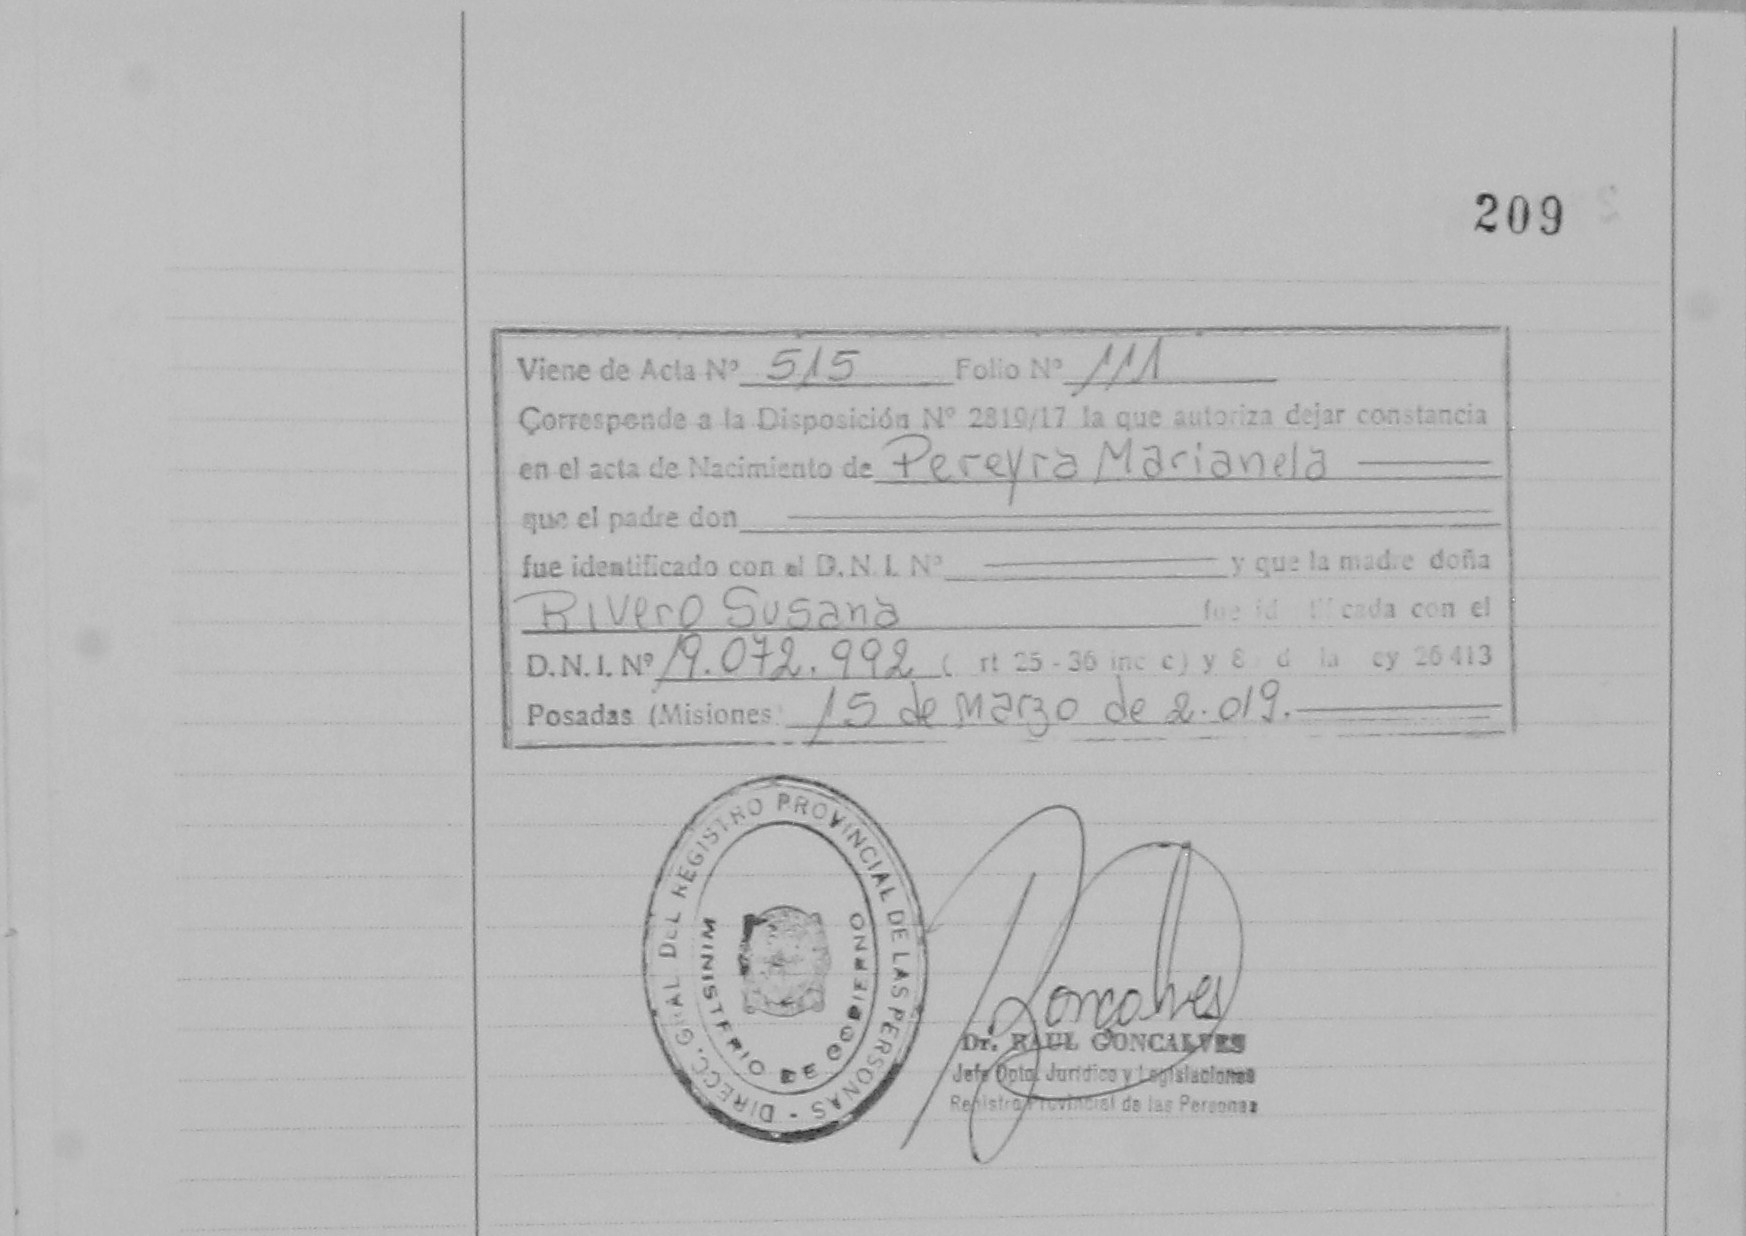 209
Viene de Acta Nº 515 Folio Nº 111
Corresponde a la Disposición Nº 2819/17 la que autoriza dejar constancia
en el acta de Nacimiento de Pereyra Marianela
que el padre don
fue identificado con el D.N.I. Nº y que la madre doña
Rivero Susana fue id cada con el
D.N.I. Nº 19.072.992 ( rt 25-36 inc c) y 8 d la ey 26413
Posadas (Misiones) 15 de marzo de 2.019.
DIRECC. GRAL DEL REGISTRO PROVINCIAL DE LAS PERSONAS -
MINISTERIO DE GOBIERNO
Goncalves
Dr. RAUL GONCALVES
Jefe Dpto. Jurídico y Legislaciones
Registro Provincial de las Personas